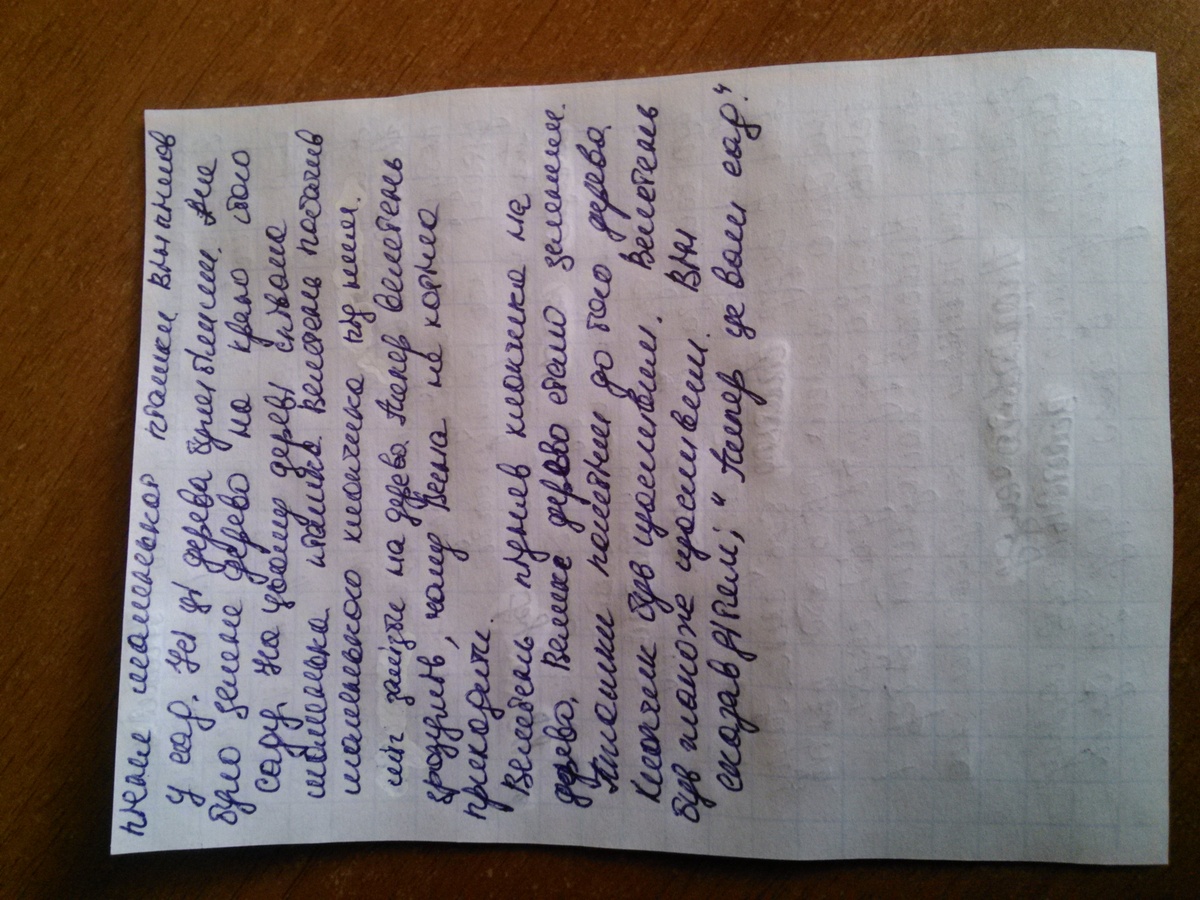 пісні маленької пташки. Він пішов
у сад. Усі ці дерева були білими. Але
було зелене дерево на краю його
саду. На цьому дереві співала
маленька пташка. Велетень побачив
маленького хлопчика під ним.
міг залізти на дерево. Тепер Велетень
зрозумів, чому Весна не хотіла
приходити.
Велетень підняв хлопчика на
дерево. Велике дерево стало зеленим.
Пташки полетіли до того дерева.
Хлопчик був щасливим. Велетень
був також щасливим. Він
сказав дітям; "Тепер це ваш сад."